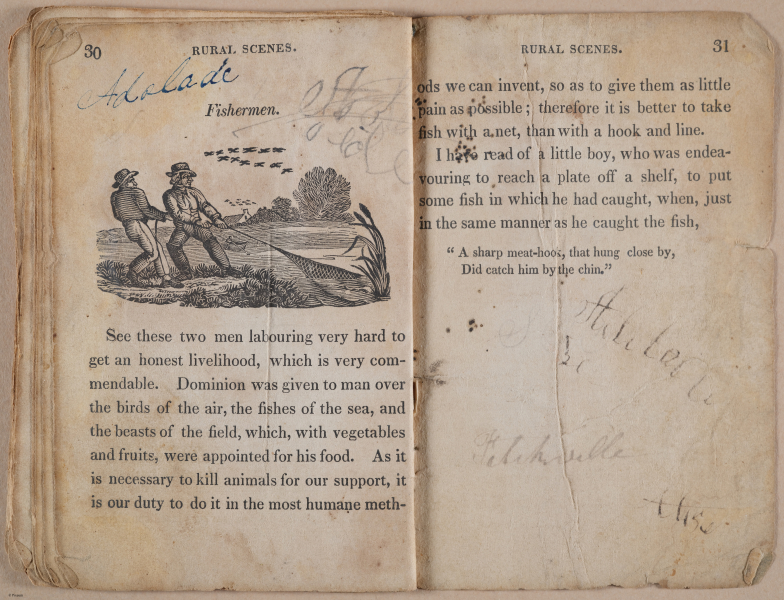 30
RURAL SCENES.
Adalade
Fishermen.
See these two men labouring very hard to
get an honest livelihood, which is very com-
mendable. Dominion was given to man over
the birds of the air, the fishes of the sea, and
the beasts of the field, which, with vegetables
and fruits, were appointed for his food. As it
is necessary to kill animals for our support, it
is our duty to do it in the most humane meth-
RURAL SCENES.
31
ods we can invent, so as to give them as little
pain as possible; therefore it is better to take
fish with a net, than with a hook and line.
I have read of a little boy, who was endea-
vouring to reach a plate off a shelf, to put
some fish in which he had caught, when, just
in the same manner as he caught the fish,
“ A sharp meat-hook, that hung close by,
Did catch him by the chin.”